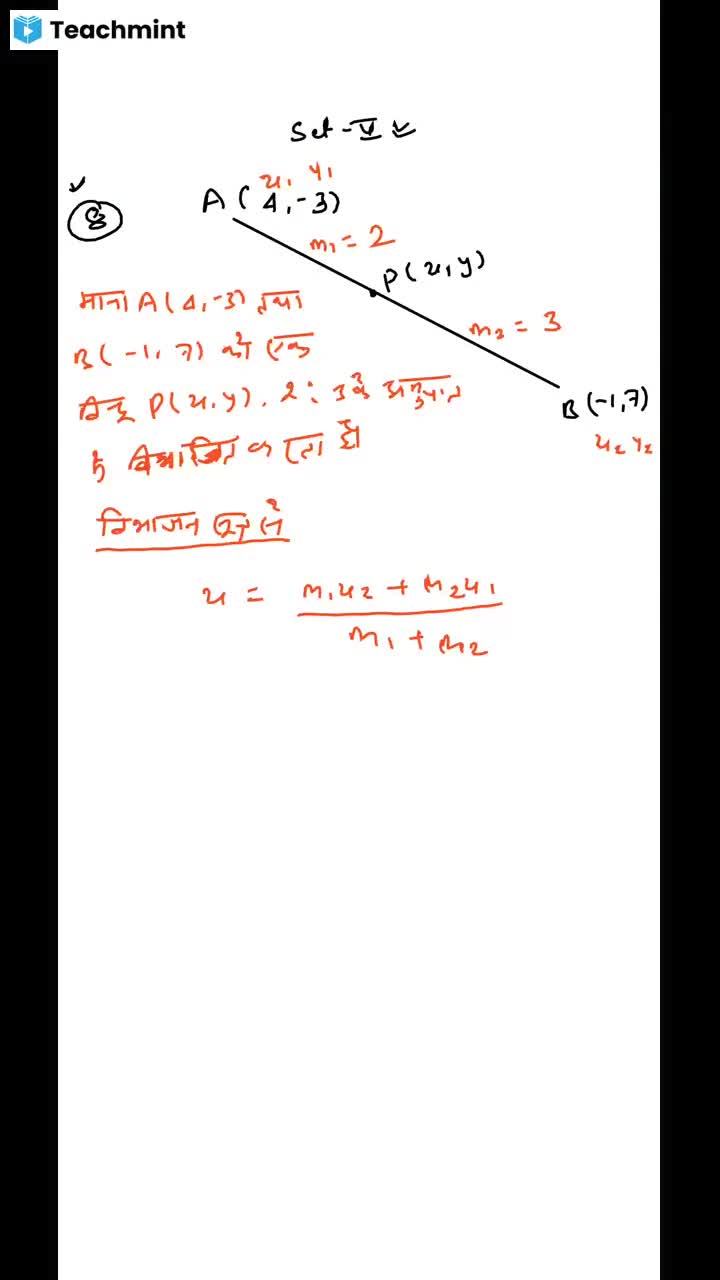 Teachmint
Set-V
8
x₁ y₁
A(4,-3)
m₁ = 2
P(x,y)
m₂ = 3
B(-1,7)
x₂ y₂
माना A(4,-3) तथा
B(-1,7) को एक
बिन्दु P(x,y), 2:3 के अनुपात
में विभाजित करता है।
विभाजन सूत्र से
x = m₁x₂ + m₂x₁
m₁ + m₂